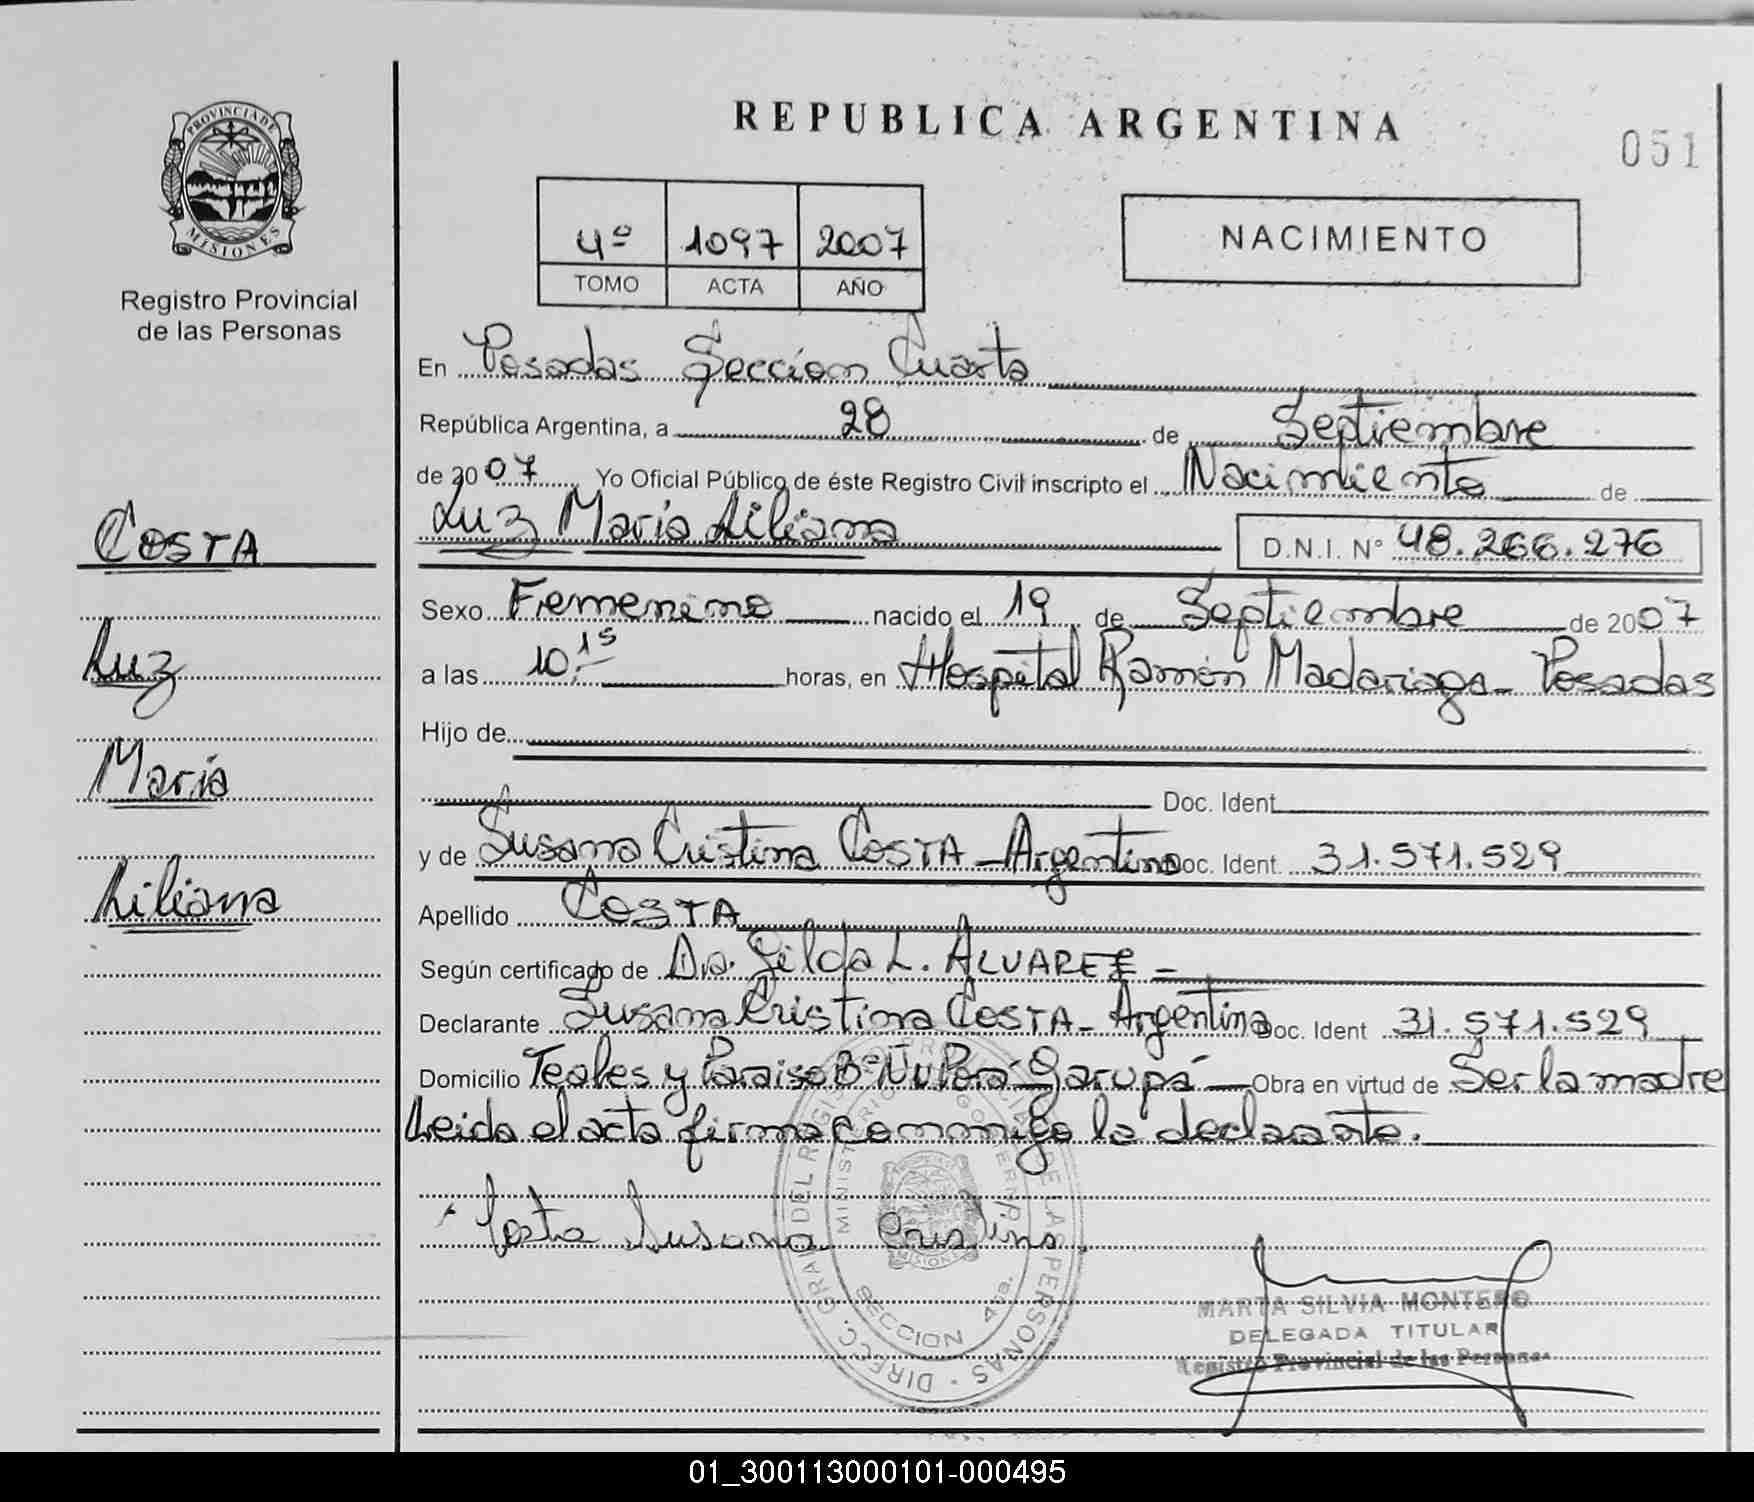 PROVINCIA DE
MISIONES
Registro Provincial
de las Personas
COSTA
Luz
María
Liliana
REPUBLICA ARGENTINA
051
4º 1097 2007
TOMO ACTA AÑO
NACIMIENTO
En Posadas Sección Cuarta
República Argentina, a 28 de Septiembre
de 2007 Yo Oficial Público de éste Registro Civil inscripto el Nacimiento de
Luz María Liliana D.N.I. Nº 48.266.276
Sexo Femenino nacido el 19 de Septiembre de 2007
a las 10:15 horas, en Hospital Ramón Madariaga - Posadas
Hijo de
Doc. Ident.
y de Susana Cristina COSTA - Argentina Doc. Ident. 31.571.529
Apellido COSTA
Según certificado de Dra. Gilda L. ALVAREZ =
Declarante Susana Cristina COSTA - Argentina Doc. Ident 31.571.529
Domicilio Teales y Paraiso Bº Ñu Porá - Garupá - Obra en virtud de Ser la madre
Leida el acta firma conmigo la declarante.
Costa Susana Cristina
DIRECC. GRAL DEL REGISTRO PROVINCIAL DE LAS PERSONAS
MINISTERIO GOBIERNO
MISIONES
SECCION 4ta.
MARTA SILVIA MONTERO
DELEGADA TITULAR
Registro Provincial de las Personas
01_300113000101-000495